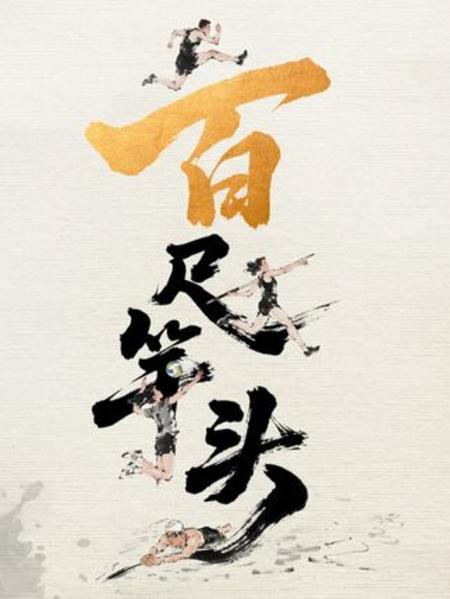 百尺竿头